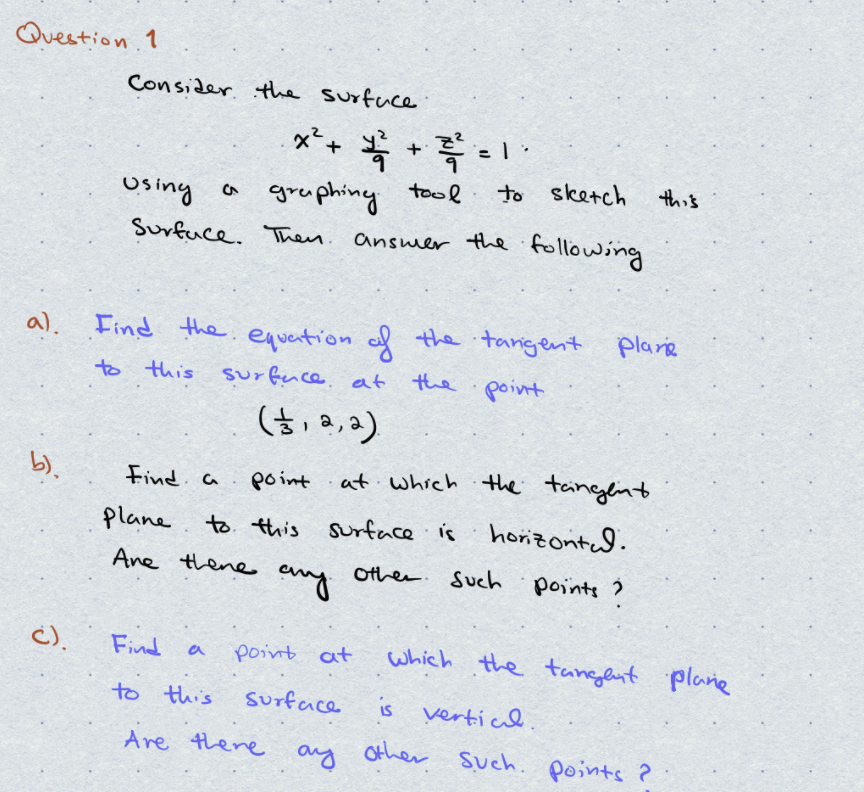 Question 1
Consider the surface
x² + y²/9 + z²/9 = 1.
using a graphing tool to sketch this
Surface. Then answer the following
a). Find the equation of the tangent plane
to this surface at the point
(1/3, 2, 2)
b). Find a point at which the tangent
plane to this surface is horizontal.
Are there any other such points?
c). Find a point at which the tangent plane
to this surface is vertical.
Are there any other such points?